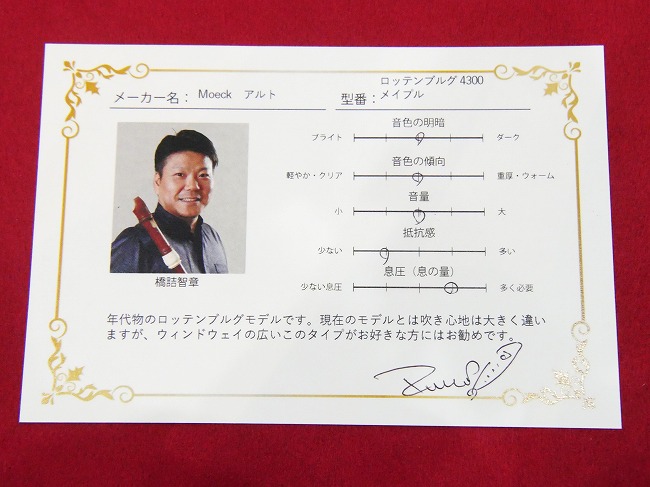 メーカー名： Moeck　アルト
ロッテンブルグ 4300
型番： メイプル
音色の明暗
ブライト　ダーク
音色の傾向
軽やか・クリア　重厚・ウォーム
音量
小　大
抵抗感
少ない　多い
息圧（息の量）
少ない息圧　多く必要
橋詰智章
年代物のロッテンブルグモデルです。現在のモデルとは吹き心地は大きく違い
ますが、ウィンドウェイの広いこのタイプがお好きな方にはお勧めです。